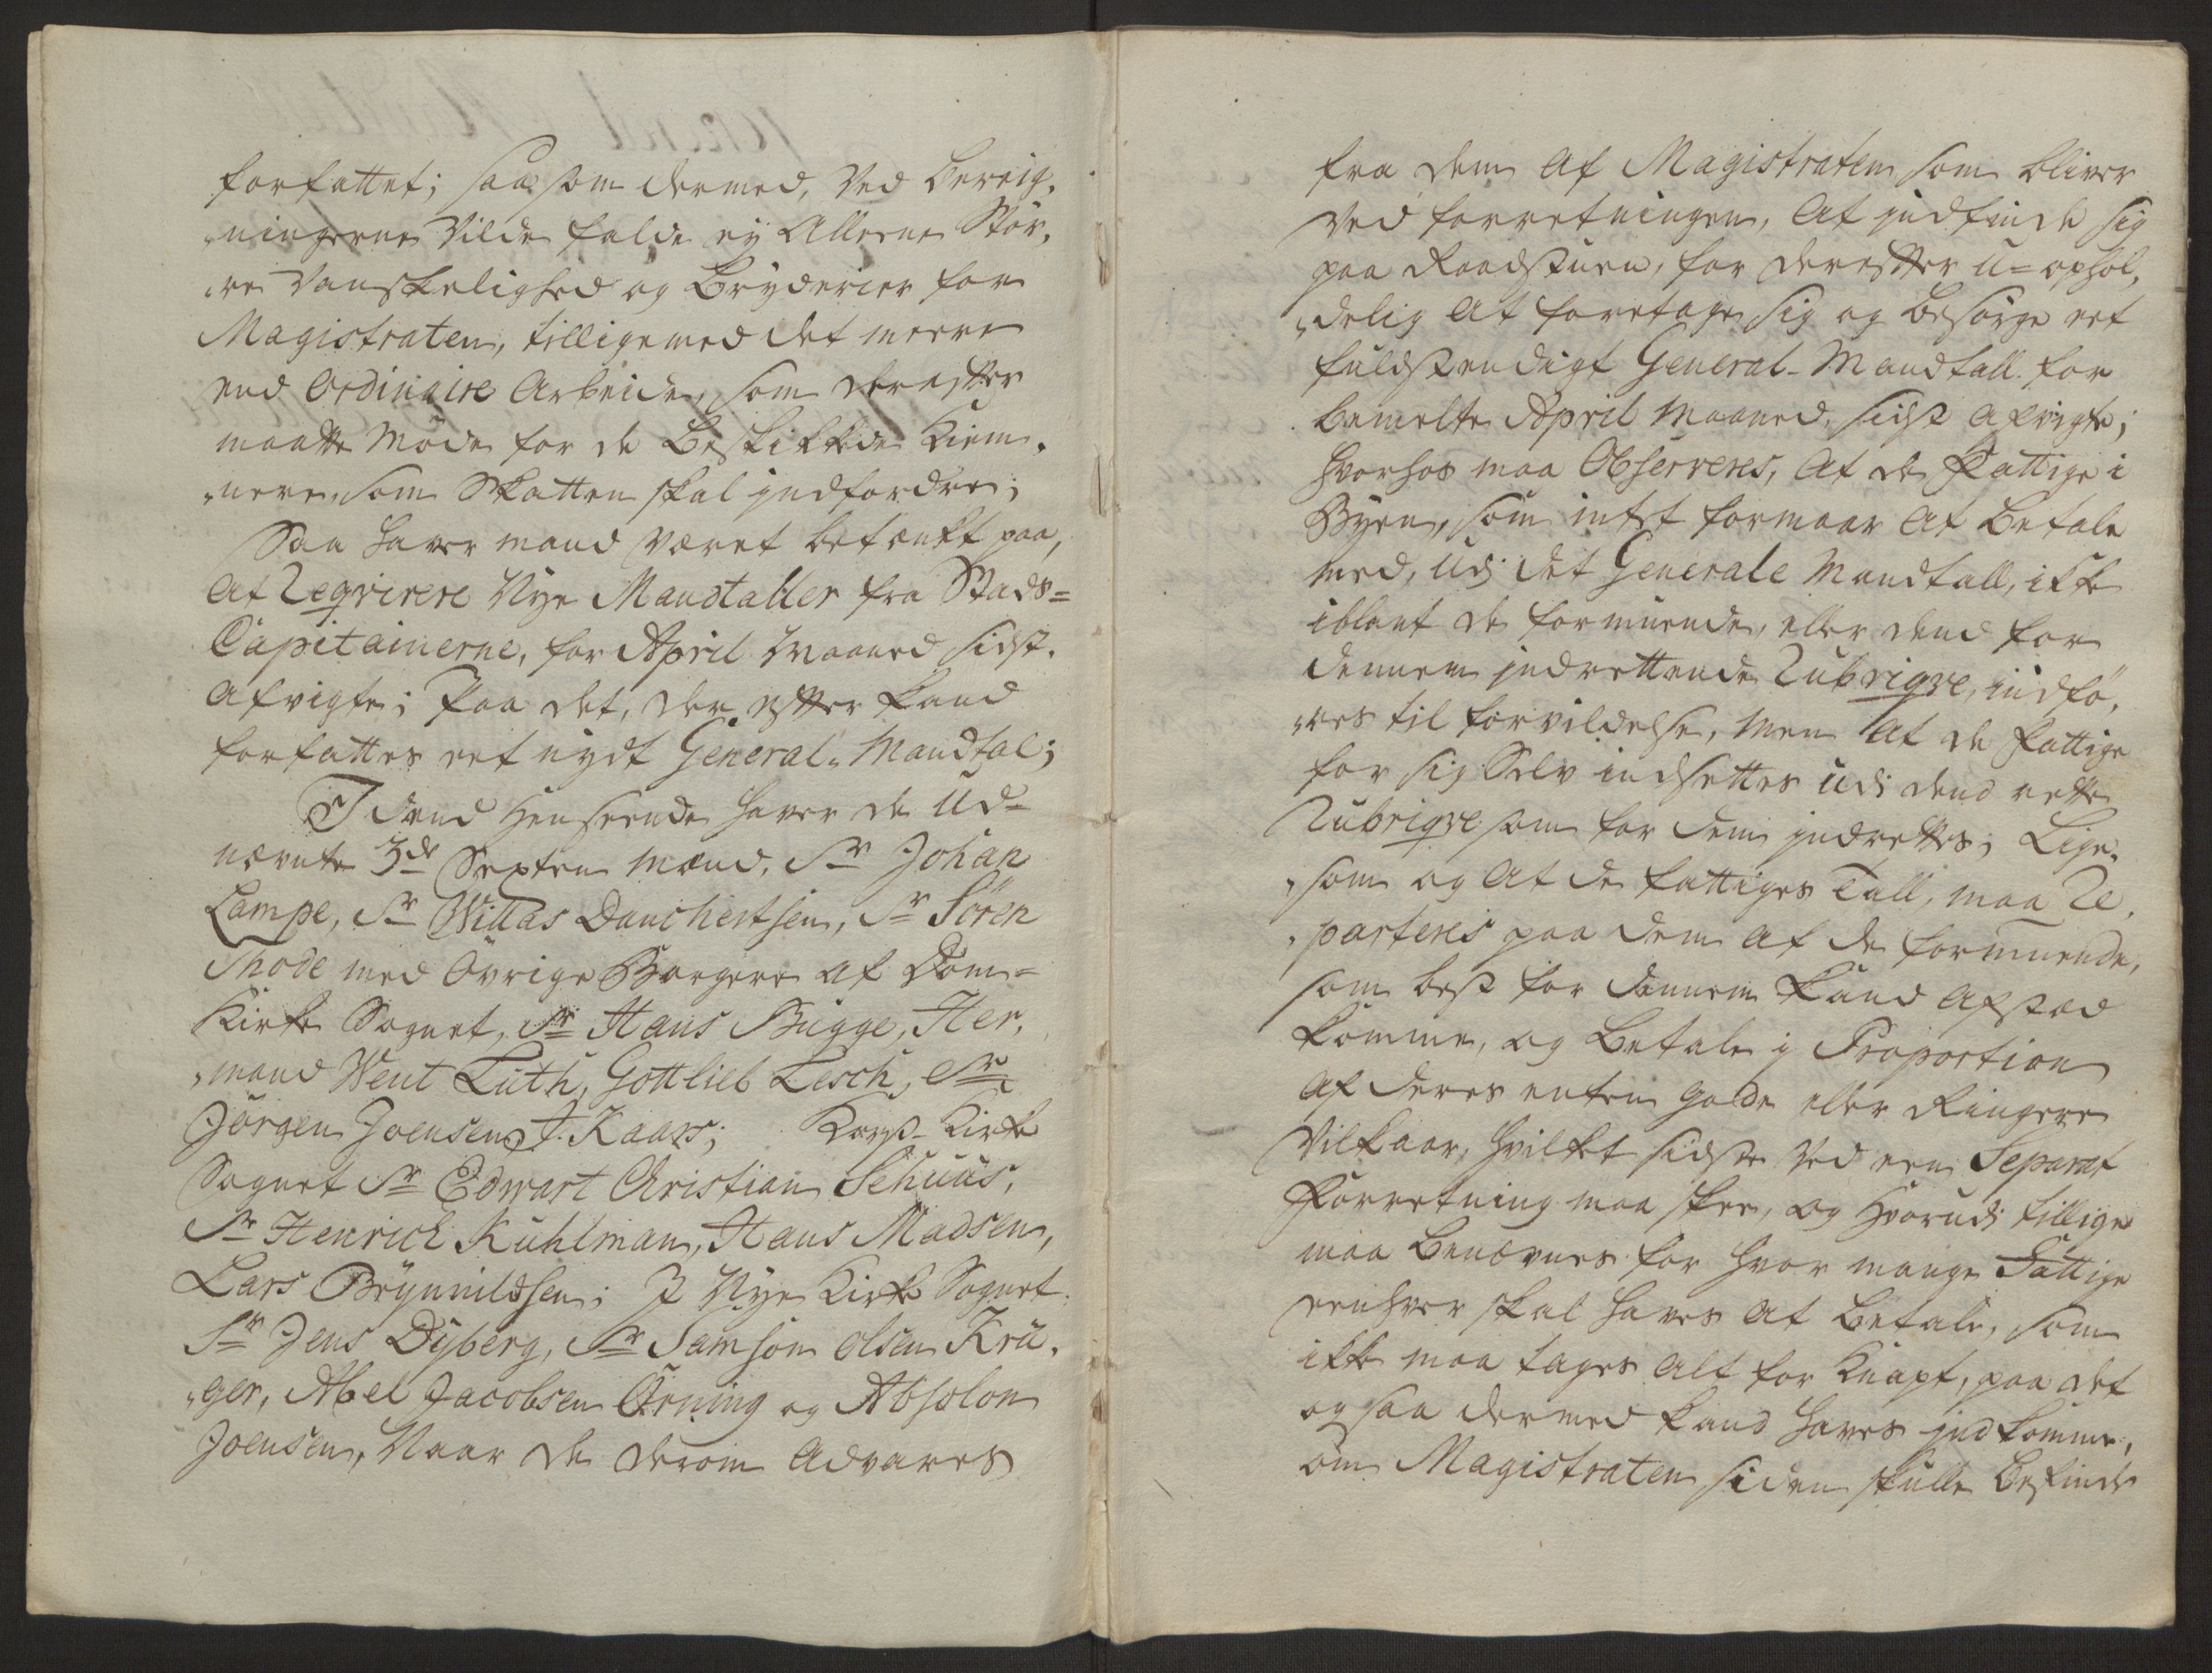 forfattet; saasom dermed, Ved bereig,
„ningerne Vilde falde ey alleene Stör,
„re Vanskelighed og Bryderier for
Magistraten, tilligemed det meere
end Ordinaire Arbeide, som derefter
maatte Möde for de Beskikkede Kiem,
„nere, som Skatten skal indfordre;
Saa haver mand været betænkt paa,
At Reqvirere Nye Mandtaller fra Stads=
Capitainerne, for April Maaned sidst.
Afvigte; Paa det, der efter kand
forfattes eet nydt General„Mandtal;
I dend Henseende haver de Ud=
nævnte 3de Sexten Mænd, Sr Johan
Lampe, Sr Willas Danchertsen, Sr Sören
Thode med Övrige Borgere af Dom=
Kirke Sognet, Sr Hans Bugge, Her,
„mand Went Lüth, Gottlieb Lesch, Sr
Jörgen Joensen J. Kaars; Kors-Kirke
Sognet Sr Edwart Christian Schuüs,
Sr Henrich Kuhlman, Hans Madsen,
Lars Brÿnnildsen; I Nye Kirke Sognet
Sr Jens Dÿberg, Sr Samson Olsen Krü,
„ger, Abel Jacobsen Örning og Absolon
Joensen, Naar de derom Advares
fra dem Af Magistraten som bliver
Ved forretningen, At indfinde sig
paa Raadstuen, for derefter U=ophol,
„delig At foretage sig og besörge eet
fuldstendigt General-Mandtall for
bemelte April Maaned, sidst afvigte;
hvorhos maa Observeres, At de Fattige i
Byen, som intet formaar At betale
med, Udj det Generale Mandtall, ikke
iblant de formuende, eller dend for
dennem indrettende Rubriqve, indfö,
„res til forvildelse, Men At de fattige
for sig Selv indsettes udj dend rette
Rubriqve som for dem indrettes; Lige,
„som og At de fattiges Tall, maa Re,
„parteres paa dem Af de formuende,
som best for dennem kand Afsted
komme, og betale i Proportion
Af deres enten gode eller Ringere
Vilkaar, hvilket sidste ved een Separat
Forretning maa skee, og hvorudj tillige
maa benævnes for hvor mange Fattige
eenhver skal haves At betale, som
ikke maa tages alt for knapt, paa det
ogsaa dermed kand haves indkomme,
om Magistraten siden skulle befinde